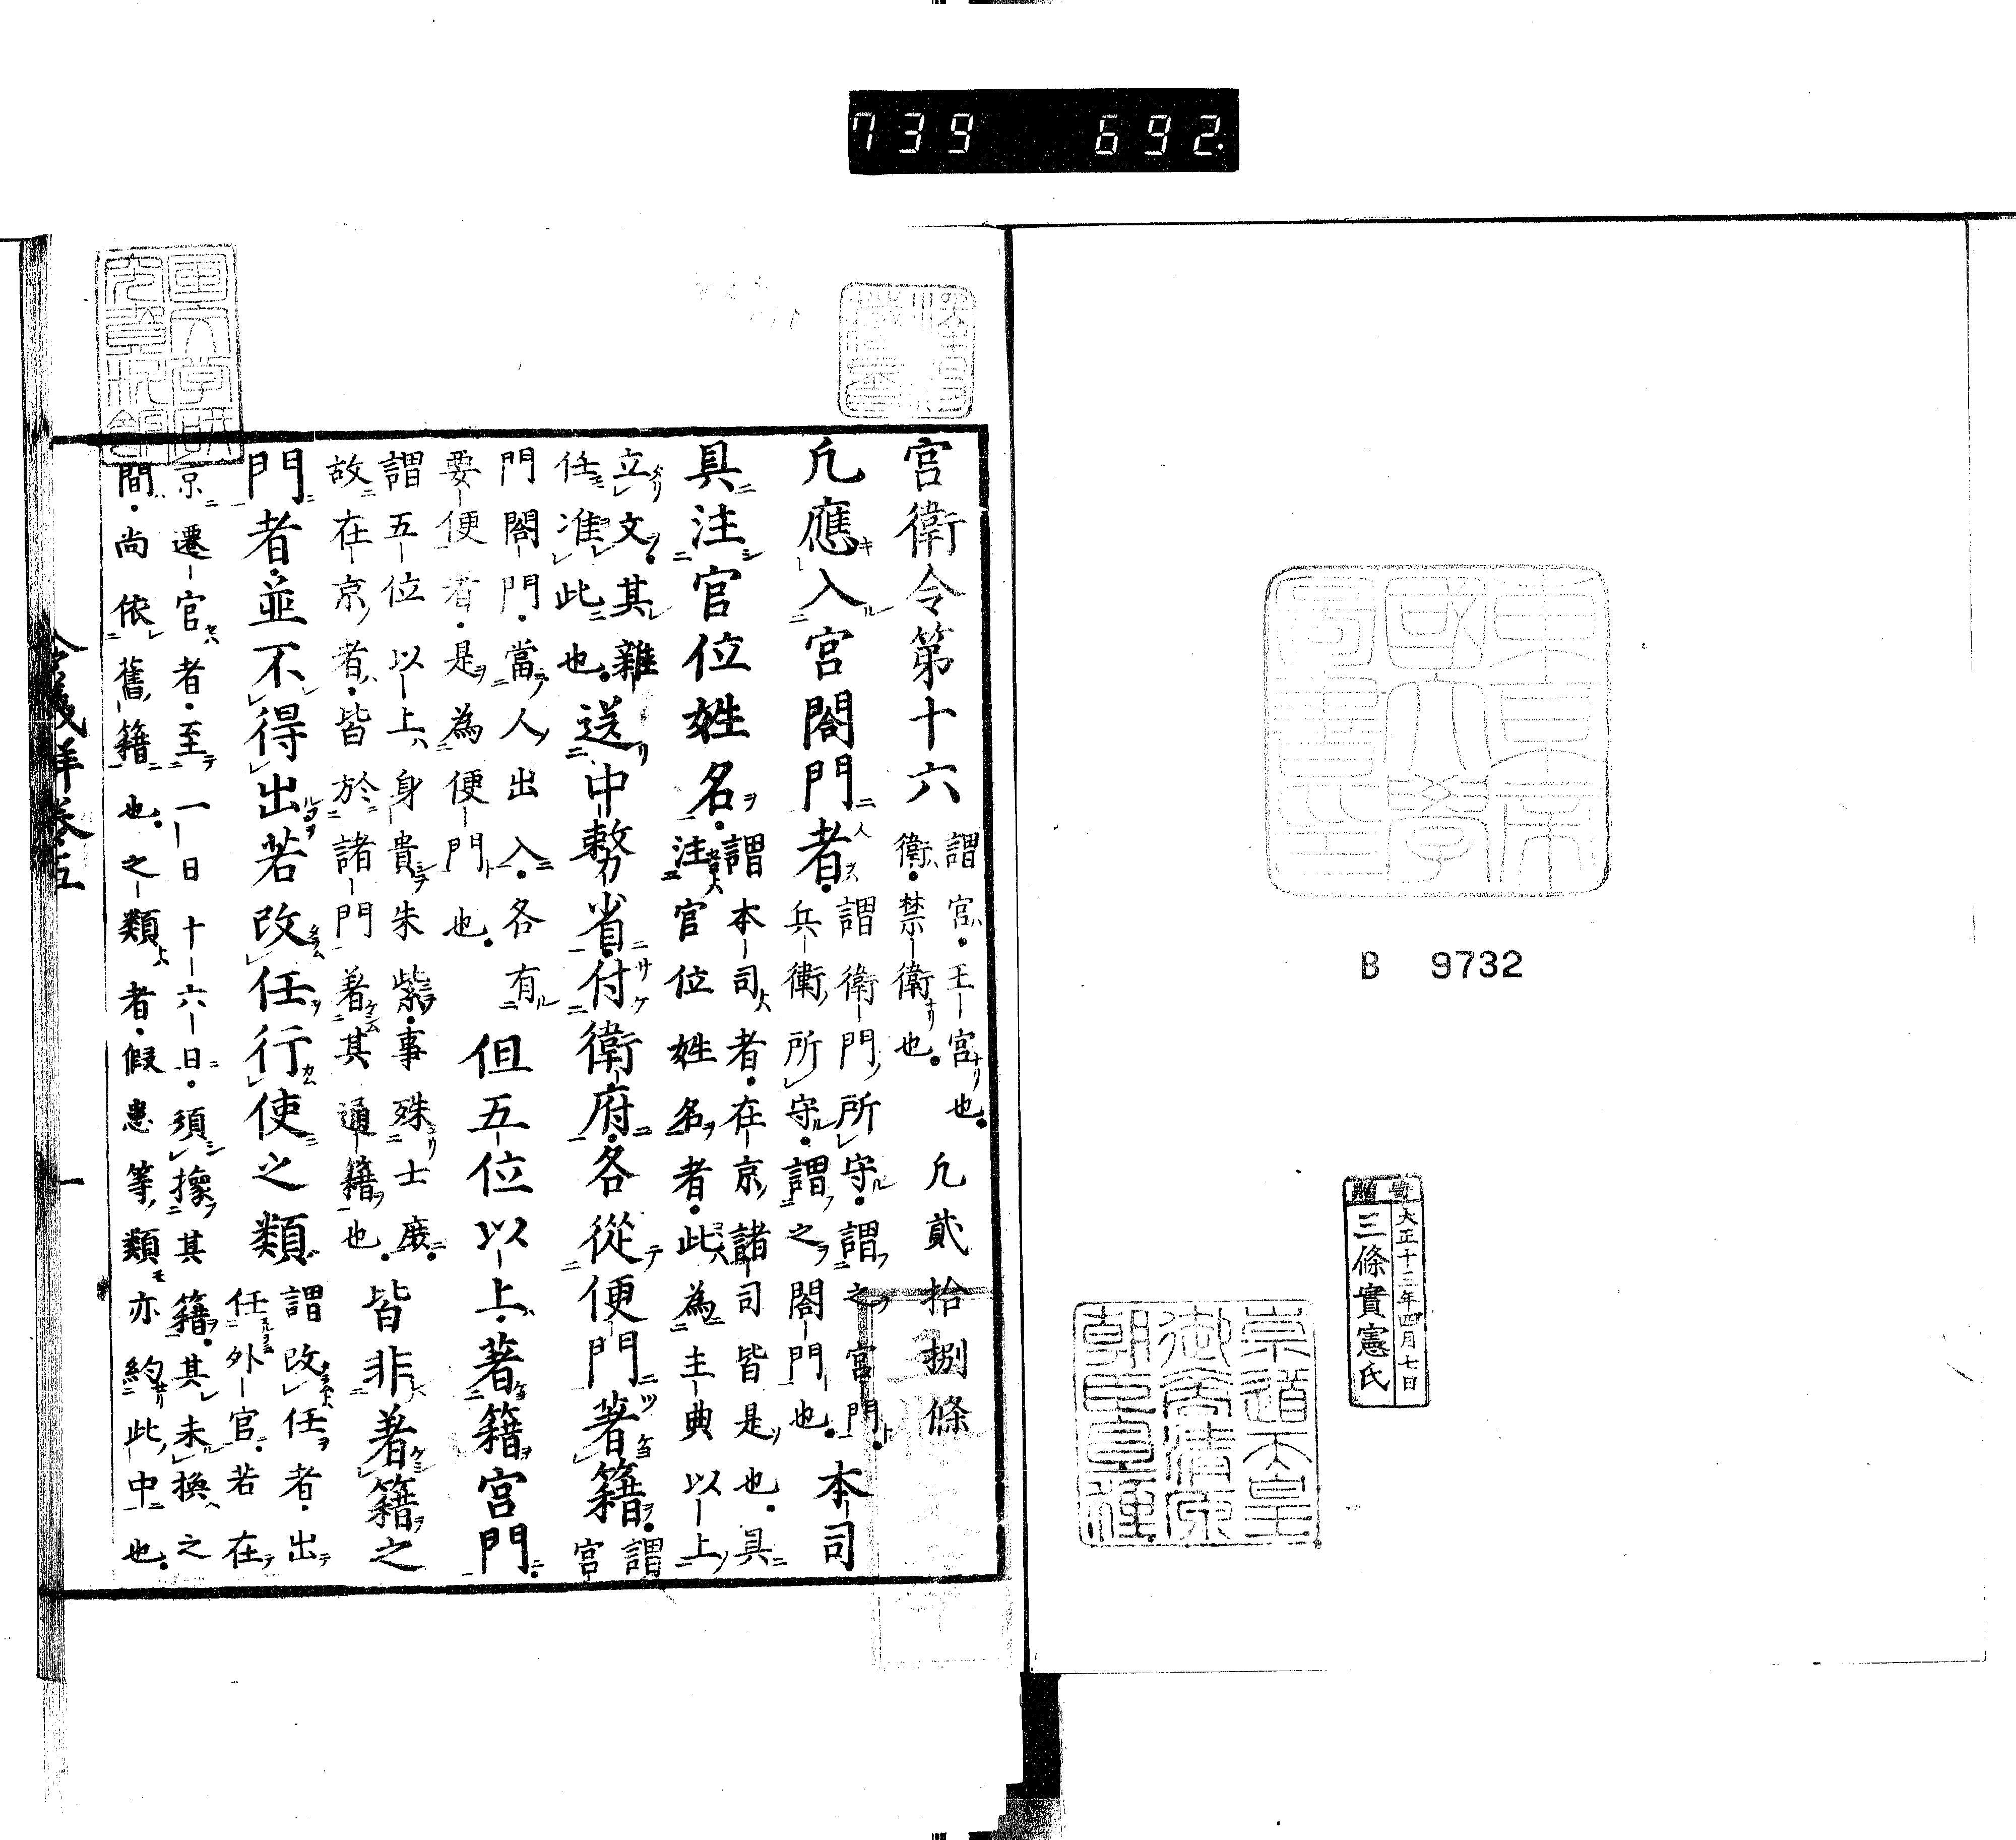 739 692
B 9732
大正十三年四月七日
三條實憲氏
宮衛令第十六
謂宮。王宮也。
衛。禁衛也。
凡貳拾捌條
凡應入宮閤門者。
謂衛門所守。謂之宮門。
兵衛所守。謂之閤門也。
本司
具注官位姓名。
謂本司者。在京諸司皆是也。具
注官位姓名者。此為主典以上
立文。其雜
任准此也。
送中務省。付衛府。各從便門著籍。
謂
宮
門閤門。當人出入。各有
要便者。是為便門也。
但五位以上。著籍宮門。
謂五位以上。身貴朱紫。事殊士庶。
故在京者。皆於諸門著其通籍也。
皆非著籍之
門者。並不得出若改任行使之類
謂改任者。出
任外官。若在
京遷官者。至一日十六日。須換其籍。其未換之
間。尚依舊籍也。之類者。假患等類亦約此中也。
令義解卷五
一